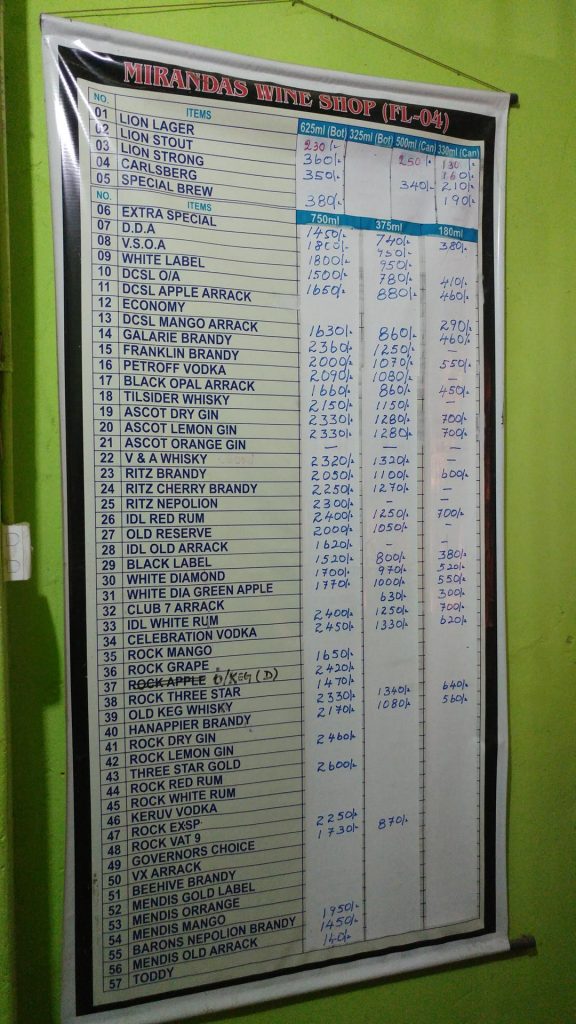 MIRANDAS WINE SHOP (FL-04)
NO. ITEMS 625ml (Bot) 325ml (Bot) 500ml (Can) 330ml (Can)
01 LION LAGER 230/- 250/- 130/-
02 LION STOUT 360/- 160/-
03 LION STRONG 350/- 340/- 210/-
04 CARLSBERG
05 SPECIAL BREW 380/- 190/-
NO. ITEMS 750ml 375ml 180ml
06 EXTRA SPECIAL 1450/- 740/- 380/-
07 D.D.A 1800/- 950/-
08 V.S.O.A 1800/- 950/-
09 WHITE LABEL 1500/- 780/- 410/-
10 DCSL O/A 1650/- 880/- 460/-
11 DCSL APPLE ARRACK
12 ECONOMY 290/-
13 DCSL MANGO ARRACK 1630/- 860/- 460/-
14 GALARIE BRANDY 2360/- 1250/- –
15 FRANKLIN BRANDY 2000/- 1070/- 550/-
16 PETROFF VODKA 2090/- 1080/- –
17 BLACK OPAL ARRACK 1660/- 860/- 450/-
18 TILSIDER WHISKY 2150/- 1150/- –
19 ASCOT DRY GIN 2330/- 1280/- 700/-
20 ASCOT LEMON GIN 2330/- 1280/- 700/-
21 ASCOT ORANGE GIN – – –
22 V & A WHISKY 2320/- 1320/- –
23 RITZ BRANDY 2050/- 1100/- 600/-
24 RITZ CHERRY BRANDY 2250/- 1270/- –
25 RITZ NEPOLION 2300/- – –
26 IDL RED RUM 2400/- 1250/- 700/-
27 OLD RESERVE 2000/- 1050/- –
28 IDL OLD ARRACK 1620/- – –
29 BLACK LABEL 1520/- 800/- 380/-
30 WHITE DIAMOND 1700/- 970/- 520/-
31 WHITE DIA GREEN APPLE 1770/- 1000/- 550/-
32 CLUB 7 ARRACK 630/- 300/-
33 IDL WHITE RUM 2400/- 1250/- 700/-
34 CELEBRATION VODKA 2450/- 1330/- 620/-
35 ROCK MANGO
36 ROCK GRAPE 1650/-
37 ROCK APPLE O/KEG (D) 2420/-
38 ROCK THREE STAR 1470/-
39 OLD KEG WHISKY 2330/- 1340/- 640/-
40 HANAPPIER BRANDY 2170/- 1080/- 560/-
41 ROCK DRY GIN
42 ROCK LEMON GIN 2460/-
43 THREE STAR GOLD
44 ROCK RED RUM 2600/-
45 ROCK WHITE RUM
46 KERUV VODKA
47 ROCK EXSP
48 ROCK VAT 9 2250/-
49 GOVERNORS CHOICE 1730/- 870/-
50 VX ARRACK
51 BEEHIVE BRANDY
52 MENDIS GOLD LABEL
53 MENDIS ORRANGE
54 MENDIS MANGO
55 BARONS NEPOLION BRANDY 1950/-
56 MENDIS OLD ARRACK 1450/-
57 TODDY 140/-